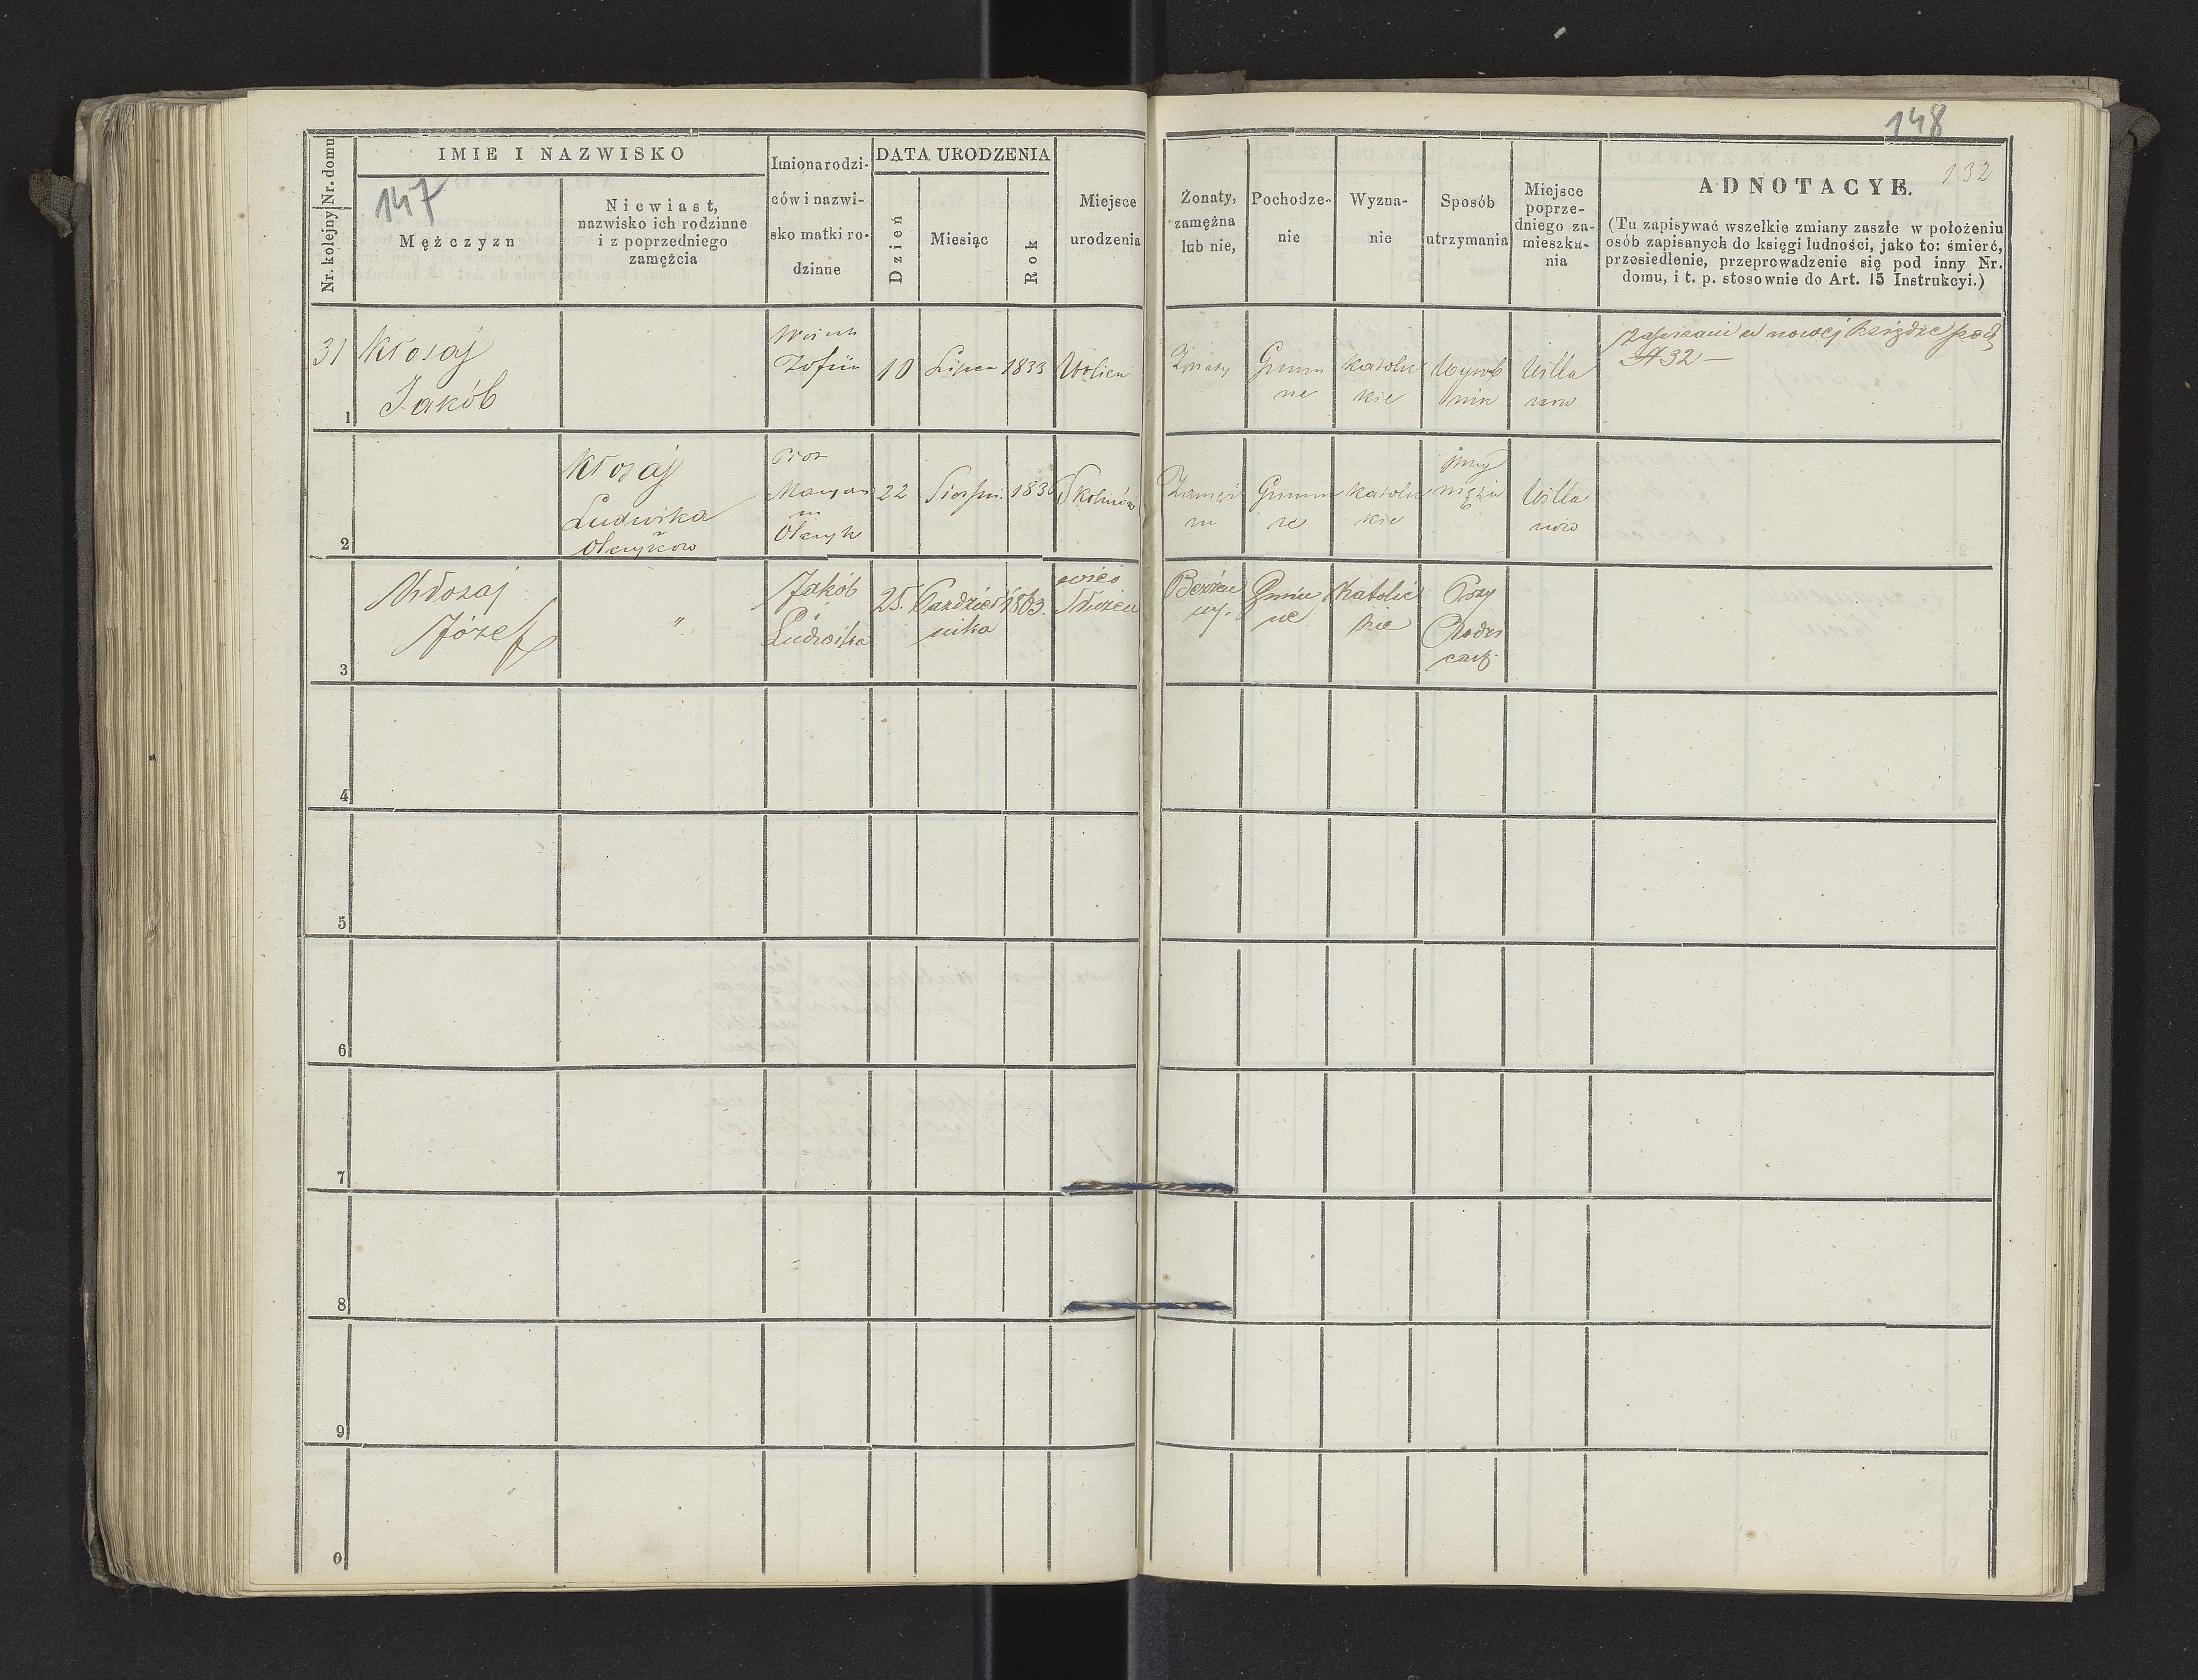 147
148
132
Nr. kolejny Nr. domu
IMIE I NAZWISKO
Mężczyzn
Niewiast,
nazwisko ich rodzinne
i z poprzedniego
zamęźcia
Imiona rodzi-
ców i nazwi-
sko matki ro-
dzinne
DATA URODZENIA
Dzień
Miesiąc
Rok
Miejsce
urodzenia
Żonaty,
zamęźna
lub nie,
Pochodze-
nie
Wyzna-
nie
Sposób
utrzymania
Miejsce
poprze-
dniego za-
mieszka-
nia
ADNOTACYE.
(Tu zapisywać wszelkie zmiany zaszłe w położeniu
osób zapisanych do księgi ludności, jako to: śmierć,
przesiedlenie, przeprowadzenie się pod inny Nr.
domu, i t. p. stosownie do Art. 15 Instrukcyi.)
31
1
Kłosaj
Jakób
Zofia
10
Lipca
1833
Wolica
Żonaty
Gmin
ne
Katolic
kie
Wyrob
nik
Willa
now
Zapisani w nowej książce pod
N 32 —
2
Kłosaj
Ludwika
Piotr
Olczyk
22
Sierpn.
Zamęż
na
Gminn
e
Katolic
kie
przy
mężu
Willa
now
3
Kłosaj
Józef
"
Jakób
i
Ludwika
25.
Październ
nika
1863.
wieś
Bezżen
ny.
Gmin
ne
Katolic
kie
Przy
Rodzi
cach
4
5
6
7
8
9
0